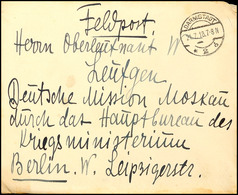 Feldpost
DARMSTADT
Herrn Oberleutnant W
Leutgen
Deutsche Mission Moskau
durch das Hauptbureau des
Kriegsministerium
Berlin. W. Leipzigerstr.